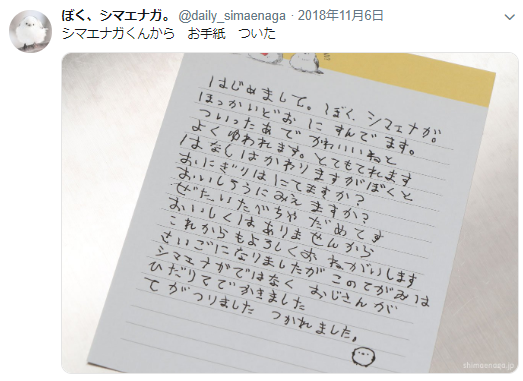 ぼく、シマエナガ。 @daily_simaenaga · 2018年11月6日
シマエナガくんから　お手紙　ついた
はじめまして。ぼく、シマエナガ。
ほっかいどおに すんでます。
ついったあで かわいいねと
よくゆわれます。とてもてれます
はなしはかわりますがぼくと
おにぎりはにてますか？
おいしろうにみえますか？
ぜたいたべちゃ だめてす
おいしくはありませんから
これからもよろしくおねがいします
さいごになりましたが このてがみは
シマエナガではなく おじさんが
ひだりてでかきました
てがつりました つかれました。
shimaenaga.jp